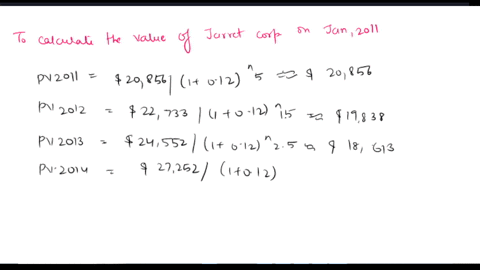 To calculate the value of Jarret corp on Jan, 2011
PV 2011 = $20,856 / (1+0.12)^n 5 ≈ $ 20,856
PV 2012 = $22,733 / (1+0.12)^n 15 ≈ $19,838
PV 2013 = $24,552 / (1+0.12)^n 2.5 ≈ $ 18,613
PV.2014 = $ 27,252 / (1+0.12)